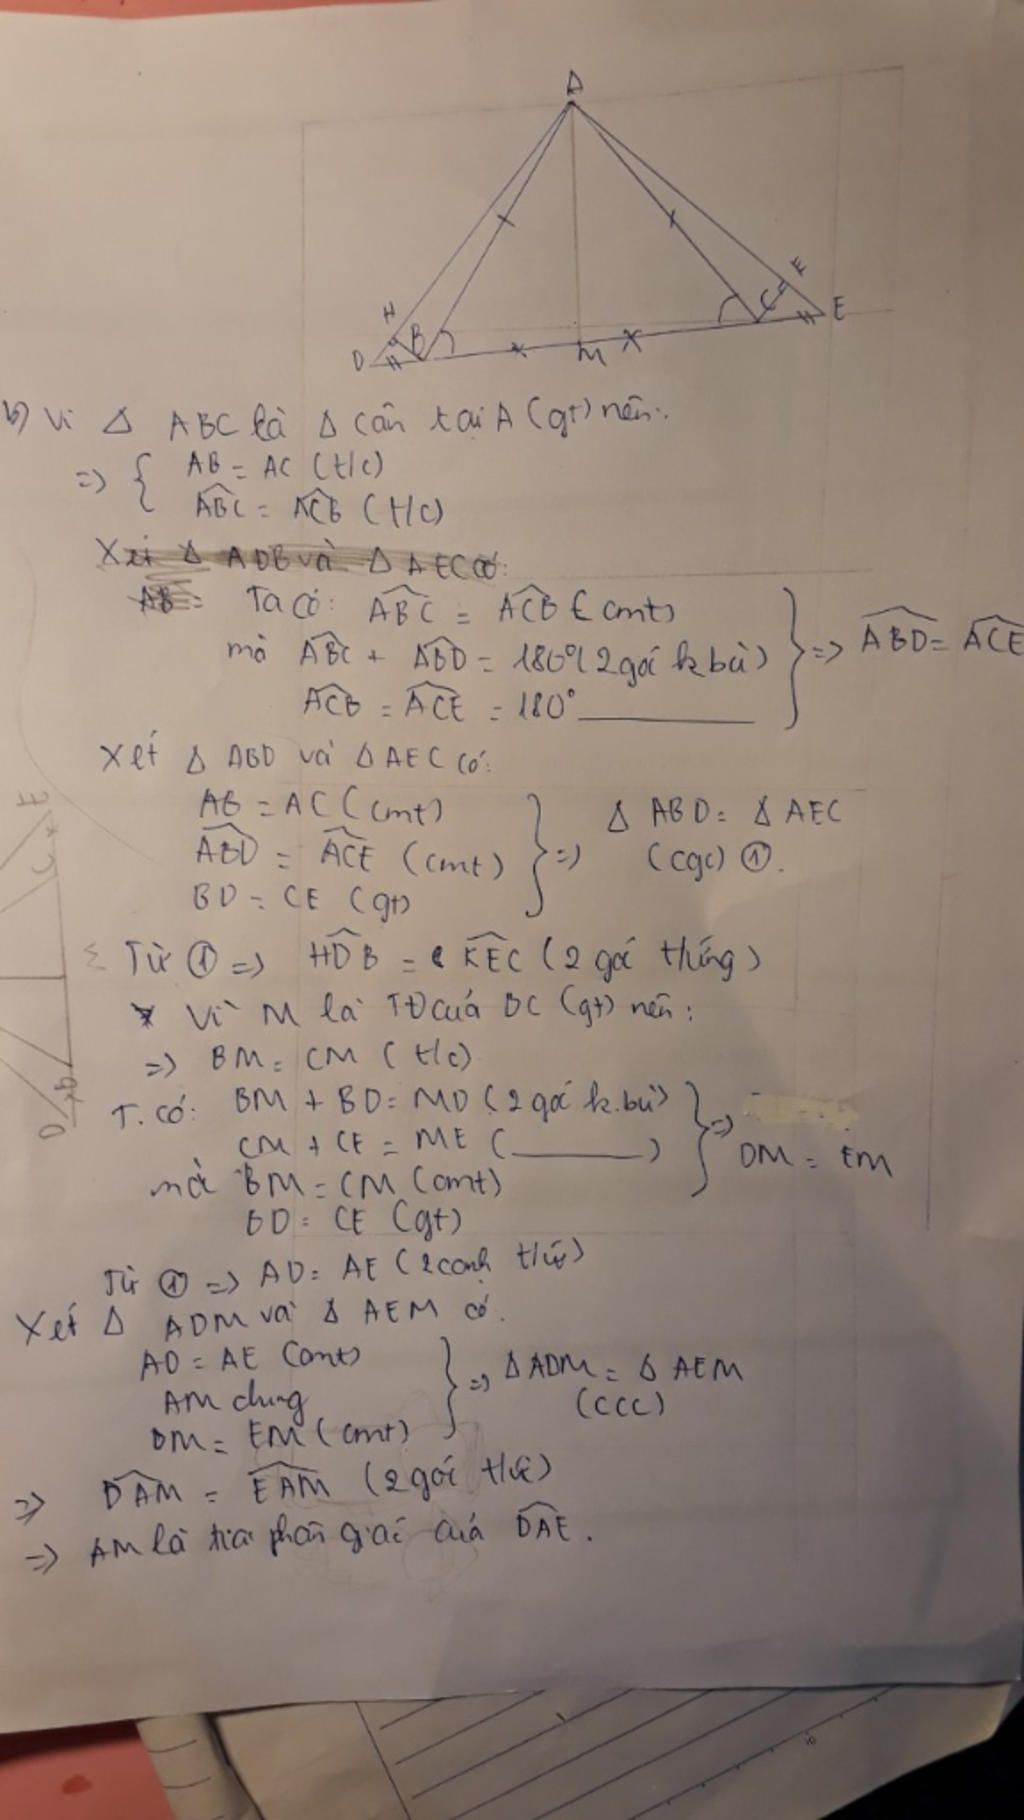 A
H
D
B
M
C
F
E
b) Vì Δ ABC là Δ cân tại A (gt) nên:
=> { AB = AC (t/c)
ABC = ACB (t/c)
Xét Δ ADB và Δ AEC có:
AB = Ta có: ABC = ACB (cmt)
mà ABC + ABD = 180° (2 góc k bù)
ACB = ACE = 180° ______
=> ABD = ACE
Xét Δ ABD và Δ AEC có:
AB = AC (cmt)
ABD = ACE (cmt)
BD = CE (gt)
=> Δ ABD = Δ AEC
(cgc) ①.
Từ ① => HDB = KEC (2 góc t/ứng)
* Vì M là TĐ của BC (gt) nên:
=> BM = CM (t/c)
T. có: BM + BD = MD (2 góc k.bù)
CM + CE = ME (______)
mà BM = CM (cmt)
BD = CE (gt)
=> DM = EM
Từ ① => AD = AE (2 cạnh t/ứ)
Xét Δ ADM và Δ AEM có.
AD = AE (cmt)
AM chung
DM = EM (cmt)
=> Δ ADM = Δ AEM
(ccc)
=> DAM = EAM (2 góc t/ứ)
=> AM là tia phân giác của DAE.
E
C
D